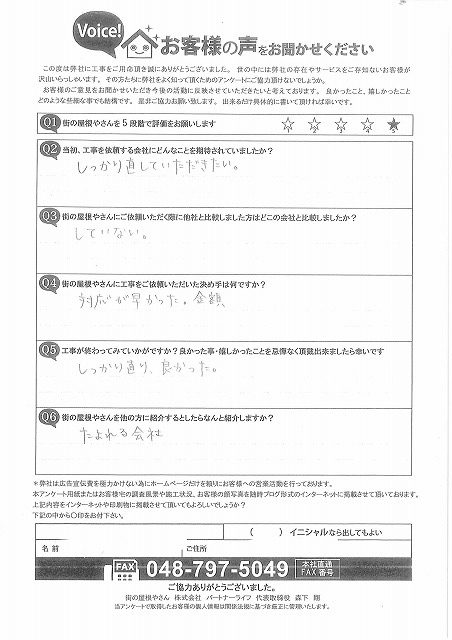 Voice!
お客様の声をお聞かせください
この度は弊社に工事をご用命頂き誠にありがとうございました。世の中には弊社の存在やサービスをご存知ないお客様が
沢山いらっしゃいます。その方たちに弊社をよく知って頂くためのアンケートにご協力頂けないでしょうか。
お客様のご意見をお聞かせいただき今後の活動に反映させていただきたいと考えております。良かったこと、嬉しかったこと
どのような些細な事でも結構です。是非ご協力お願い致します。出来るだけ具体的に書いて頂ければ幸いです。
Q1 街の屋根やさんを5段階で評価をお願いします
☆ ☆ ☆ ☆ ★
1 2 3 4 5
Q2 当初、工事を依頼する会社にどんなことを期待されていましたか?
しっかり直していただきたい。
Q3 街の屋根やさんにご依頼いただく際に他社と比較しました方はどこの会社と比較しましたか?
していない。
Q4 街の屋根やさんに工事をご依頼いただいた決め手は何ですか?
対応が早かった。金額
Q5 工事が終わってみていかがですか?良かった事・嬉しかったことを忌憚なく頂戴出来ましたら幸いです
しっかり直り、良かった。
Q6 街の屋根やさんを他の方に紹介するとしたらなんと紹介しますか?
たよれる会社
*弊社は広告宣伝費を極力かけない為にホームページだけを頼りにお客様への営業活動を行っております。
本アンケート用紙またはお客様宅の調査風景や施工状況、お客様の顔写真を随時ブログ形式のインターネットに掲載させて頂いております。
上記内容をインターネットや印刷物に掲載させて頂いてもよろしいでしょうか?
下記の中から〇印をお付下さい。
( ) イニシャルなら出してもよい
名前 ご住所
FAX 048-797-5049 本社直通 FAX番号
ご協力ありがとうございました。
街の屋根やさん 株式会社 パートナーライフ 代表取締役 森下 翔
当アンケートで取得したお客様の個人情報は関係法規に基づき厳正に管理いたします。